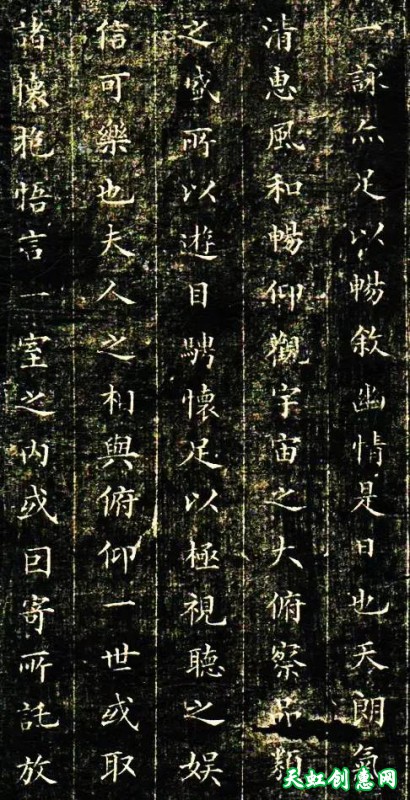 一詠亦足以暢敘幽情是日也天朗氣
清惠風和暢仰觀宇宙之大俯察品類
之盛所以遊目騁懷足以極視聽之娛
信可樂也夫人之相與俯仰一世或取
諸懷抱悟言一室之內或因寄所託放
天虹创意网